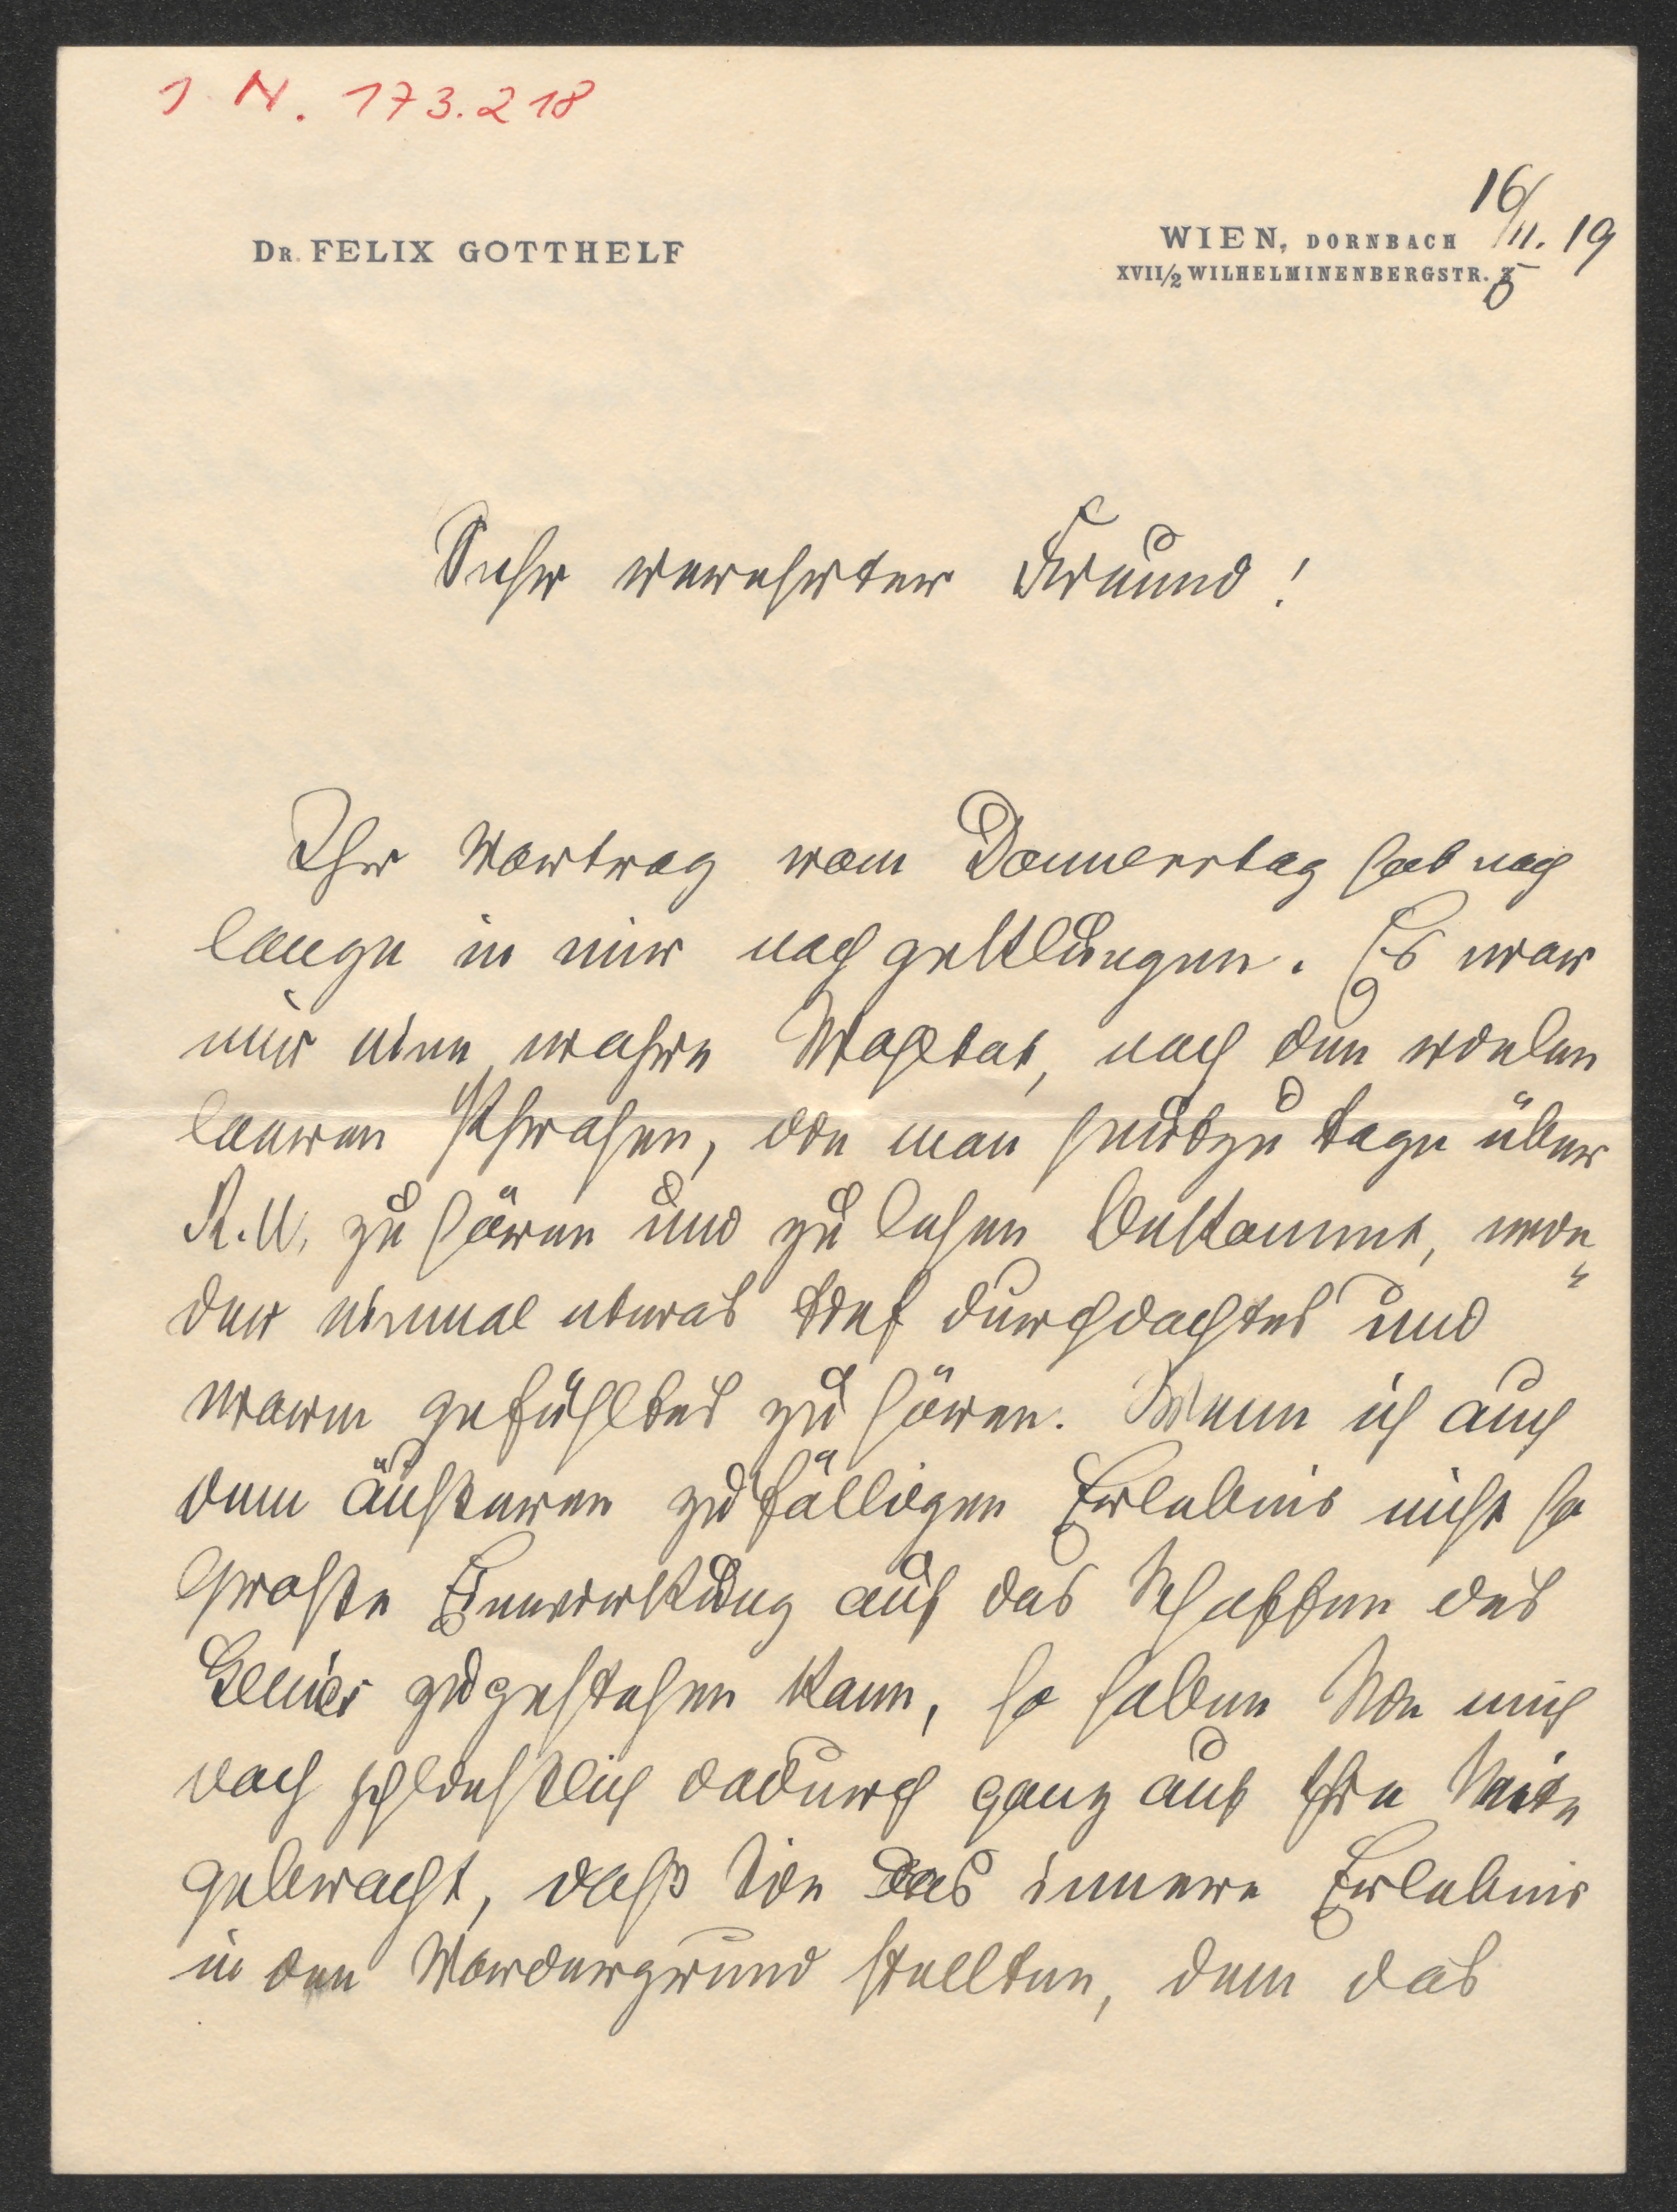 J. N. 173.218
16/11. 19
DR. FELIX GOTTHELF
WIEN, DORNBACH
XVII/2 WILHELMINENBERGSTR. 5
Sehr verehrter Freund!
Ihr Vortrag vom Donnerstag hat noch
lange in mir nachgeklungen. Es war
mir eine wahre Wohltat, nach den vielen
leeren Phrasen, die man heutzu tage über
R. W. zu hören und zu lesen bekommt, wie-
der einmal etwas tief durchdachtes und
warm gefühltes zu hören. Wenn ich auch
dem äußeren zufälligen Erlebnis nicht so
große Einwirkung auf das Schaffen des
Genies zugestehen kann, so haben Sie mich
doch schließlich dadurch ganz auf Ihre Seite
gebracht, daß Sie das innere Erlebnis
in den Vordergrund stellten, dem das